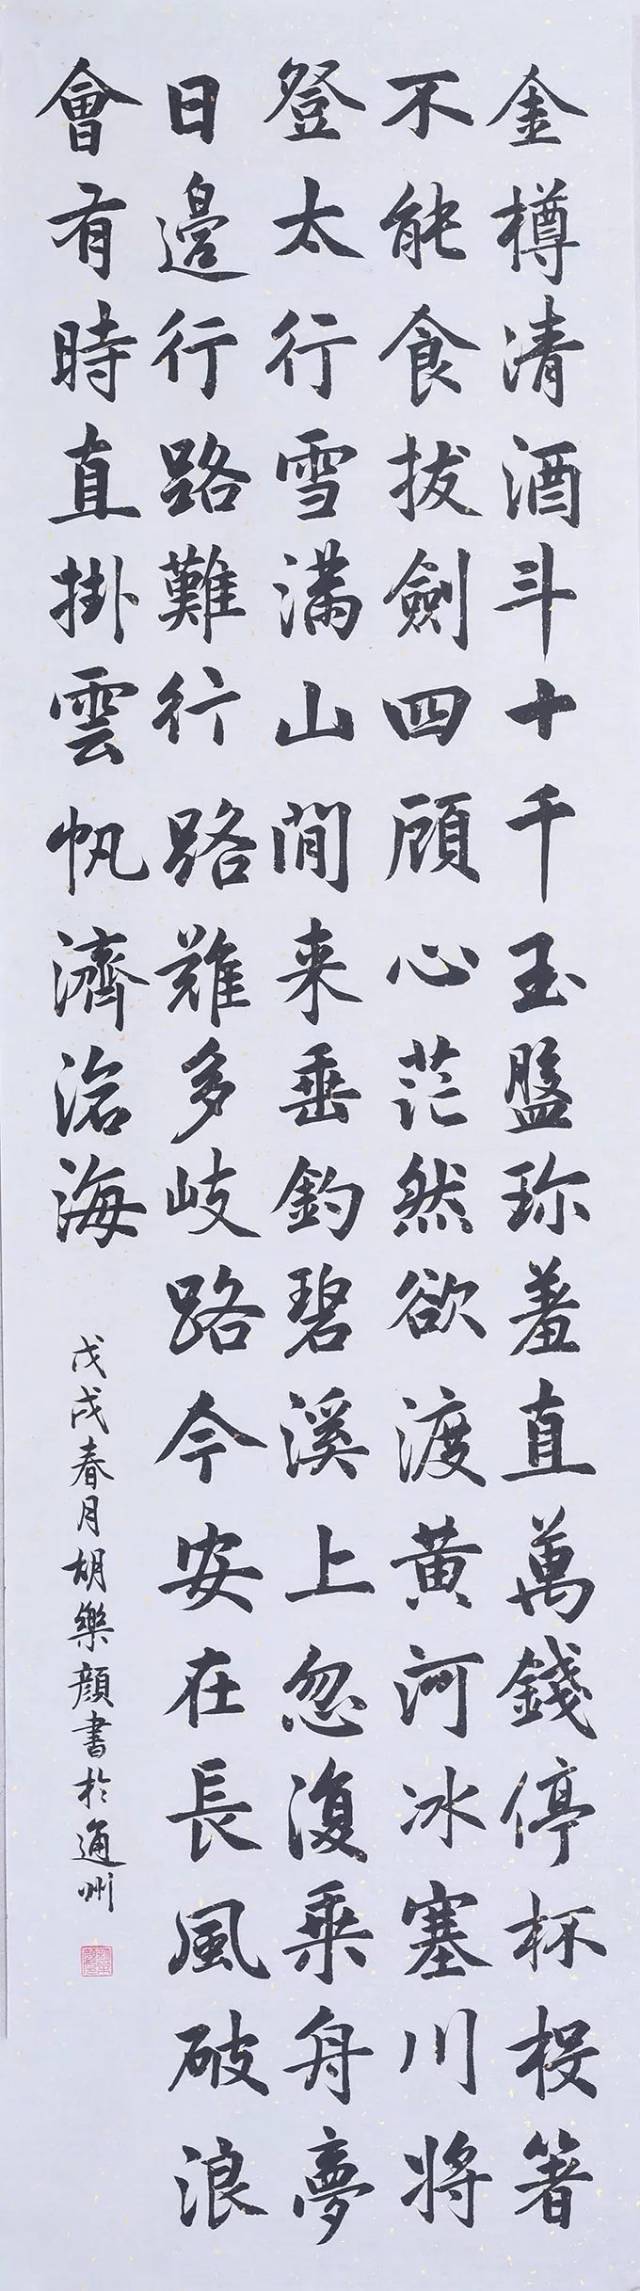 金樽清酒斗十千玉盤珍羞直萬錢停杯投箸
不能食拔劍四顧心茫然欲渡黄河冰塞川將
登太行雪滿山閒来垂釣碧溪上忽復乘舟夢
日邊行路難行路難多岐路今安在長風破浪
會有時直掛雲帆濟滄海
戊戌春月胡樂顔書於通州